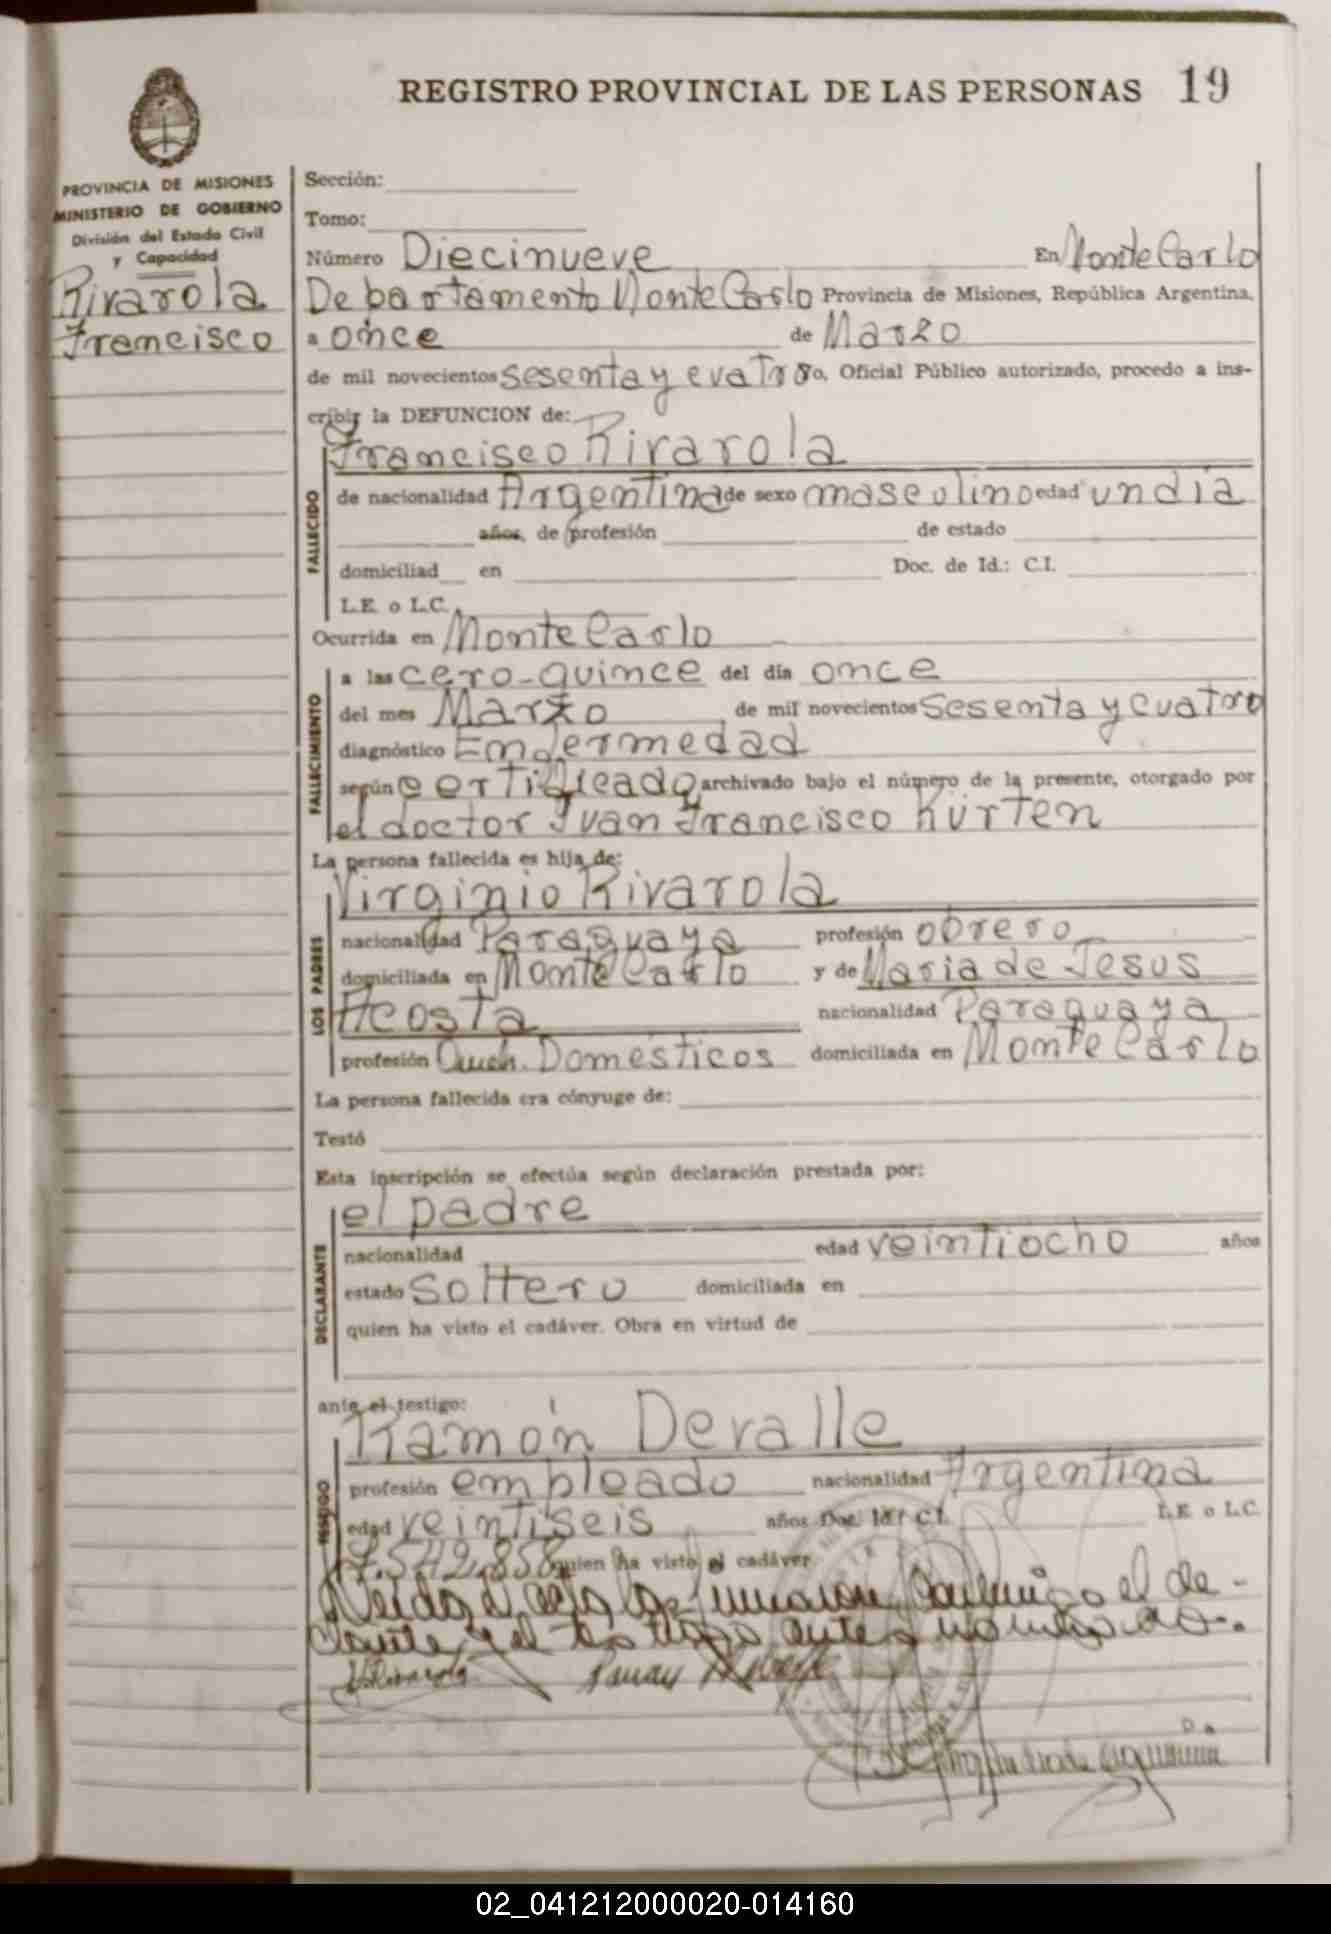 REGISTRO PROVINCIAL DE LAS PERSONAS 19
PROVINCIA DE MISIONES
MINISTERIO DE GOBIERNO
División del Estado Civil
y Capacidad
Rivarola
Francisco
Sección:
Tomo:
Número Diecinueve En Monte Carlo
Departamento Monte Carlo Provincia de Misiones, República Argentina,
a once de Marzo
de mil novecientos sesenta y cuatro yo, Oficial Público autorizado, procedo a ins-
cribir la DEFUNCION de:
Francisco Rivarola
FALLECIDO
de nacionalidad Argentina de sexo masculino edad un día
años, de profesión de estado
domiciliad en Doc. de Id.: C.I.
L.E. o L.C.
Ocurrida en Monte Carlo
FALLECIMIENTO
a las cero-quince del día once
del mes Marzo de mil novecientos sesenta y cuatro
diagnóstico Enfermedad
según certificado archivado bajo el número de la presente, otorgado por
el doctor Juan Francisco Kürten
La persona fallecida es hija de:
Virginio Rivarola
LOS PADRES
nacionalidad Paraguaya profesión obrero
domiciliada en Monte Carlo y de Maria de Jesus
Acosta nacionalidad Paraguaya
profesión Queh. Domésticos domiciliada en Monte Carlo
La persona fallecida era cónyuge de:
Testó
Esta inscripción se efectúa según declaración prestada por:
el padre
DECLARANTE
nacionalidad edad veintiocho años
estado Soltero domiciliada en
quien ha visto el cadáver. Obra en virtud de
ante el testigo:
Ramón Deralle
TESTIGO
profesión empleado nacionalidad Argentina
edad veintiseis años Doc. Id.: C.I. L.E. o L.C.
7.542.858 quien ha visto el cadáver.
Leida el acta la firmaron conmigo el de-
clarante y el testigo antes nombrado.
VRivarola
02_041212000020-014160